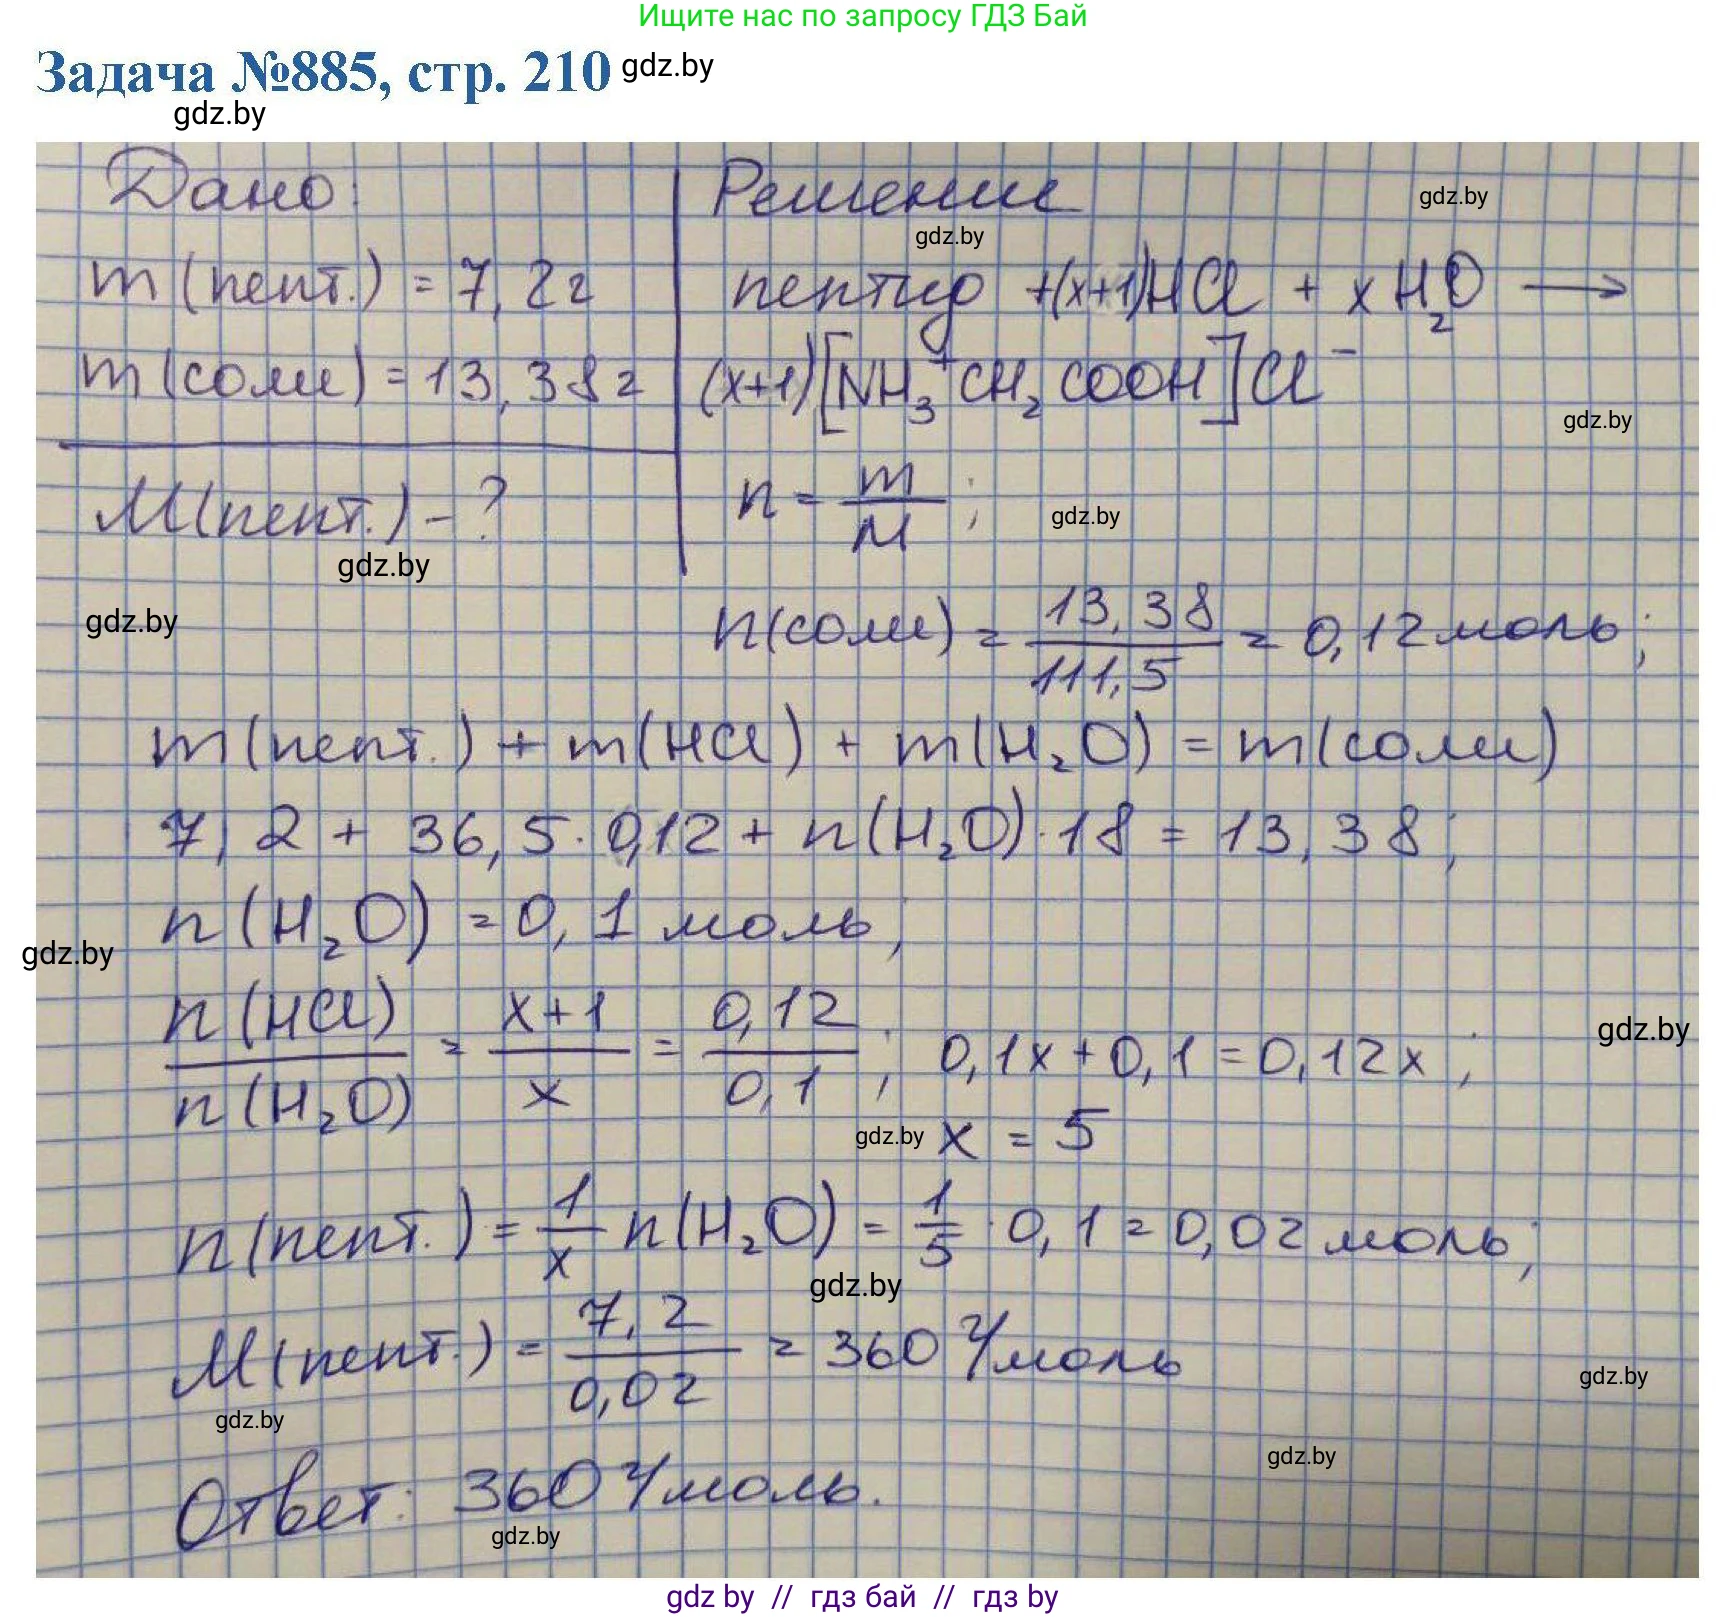 Ищите нас по запросу ГДЗ Бай
Задача №885, стр. 210 gdz.by
gdz.by
Дано:
m(пепт.) = 7,2г
m(соли) = 13,38г
М(пепт.) - ?
gdz.by
gdz.by
Решение gdz.by
gdz.by
пептид +(x+1)HCl + xH₂O →
(x+1)[NH₃⁺CH₂COOH]Cl⁻
gdz.by
n = m/M ; gdz.by
n(соли) = 13,38/111,5 = 0,12 моль;
m(пепт.) + m(HCl) + m(H₂O) = m(соли)
7,2 + 36,5·0,12 + n(H₂O)·18 = 13,38;
n(H₂O) = 0,1 моль;
gdz.by
n(HCl)/n(H₂O) = x+1/x = 0,12/0,1 ; 0,1x+0,1=0,12x ;
gdz.by
gdz.by x = 5
n(пепт.) = 1/x n(H₂O) = 1/5 · 0,1 = 0,02 моль;
gdz.by
М(пепт.) = 7,2/0,02 = 360 г/моль
gdz.by
gdz.by
Ответ: 360 г/моль.
gdz.by
gdz.by
gdz by // гдз бай // гдз by